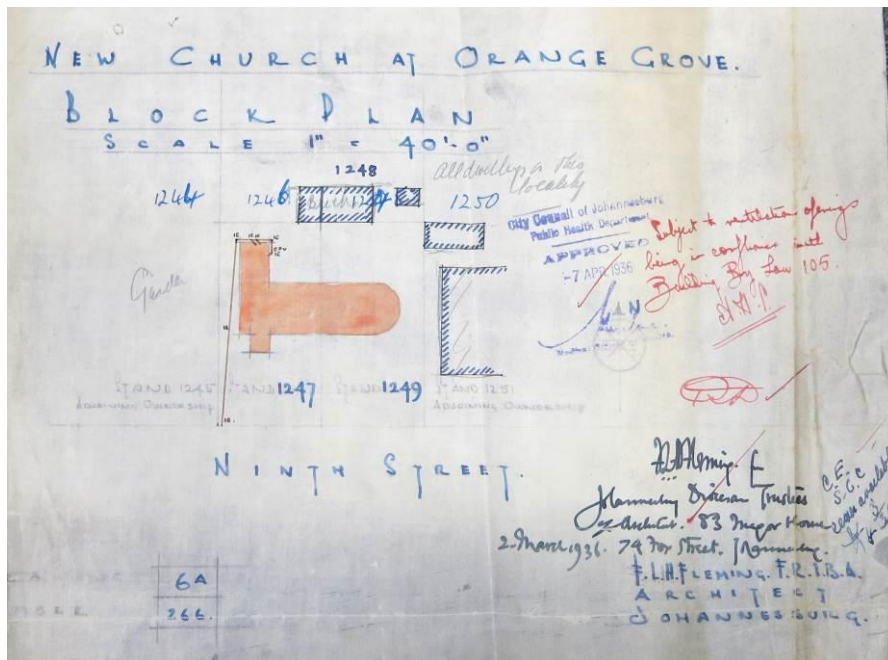 NEW CHURCH AT ORANGE GROVE.
BLOCK PLAN
SCALE 1" = 40'-0"
1248
All dwellings in this
locality
1244
1246
1250
City Council of Johannesburg
Public Health Department
APPROVED
-7 APR 1936
Subject to ventilation openings
being in conformance with
Building Bye Law 105.
Garden
STAND 1245
STAND 1247
STAND 1249
STAND 1251
ADJOINING OWNERSHIP
ADJOINING OWNERSHIP
NINTH STREET.
Johannesburg Diocesan Trustees
Architect. 83 House
2 March 1936. 74 Fox Street. Johannesburg.
F.L.H. FLEMING. F.R.I.B.A.
ARCHITECT
JOHANNESBURG.
C.E.
6A
266.